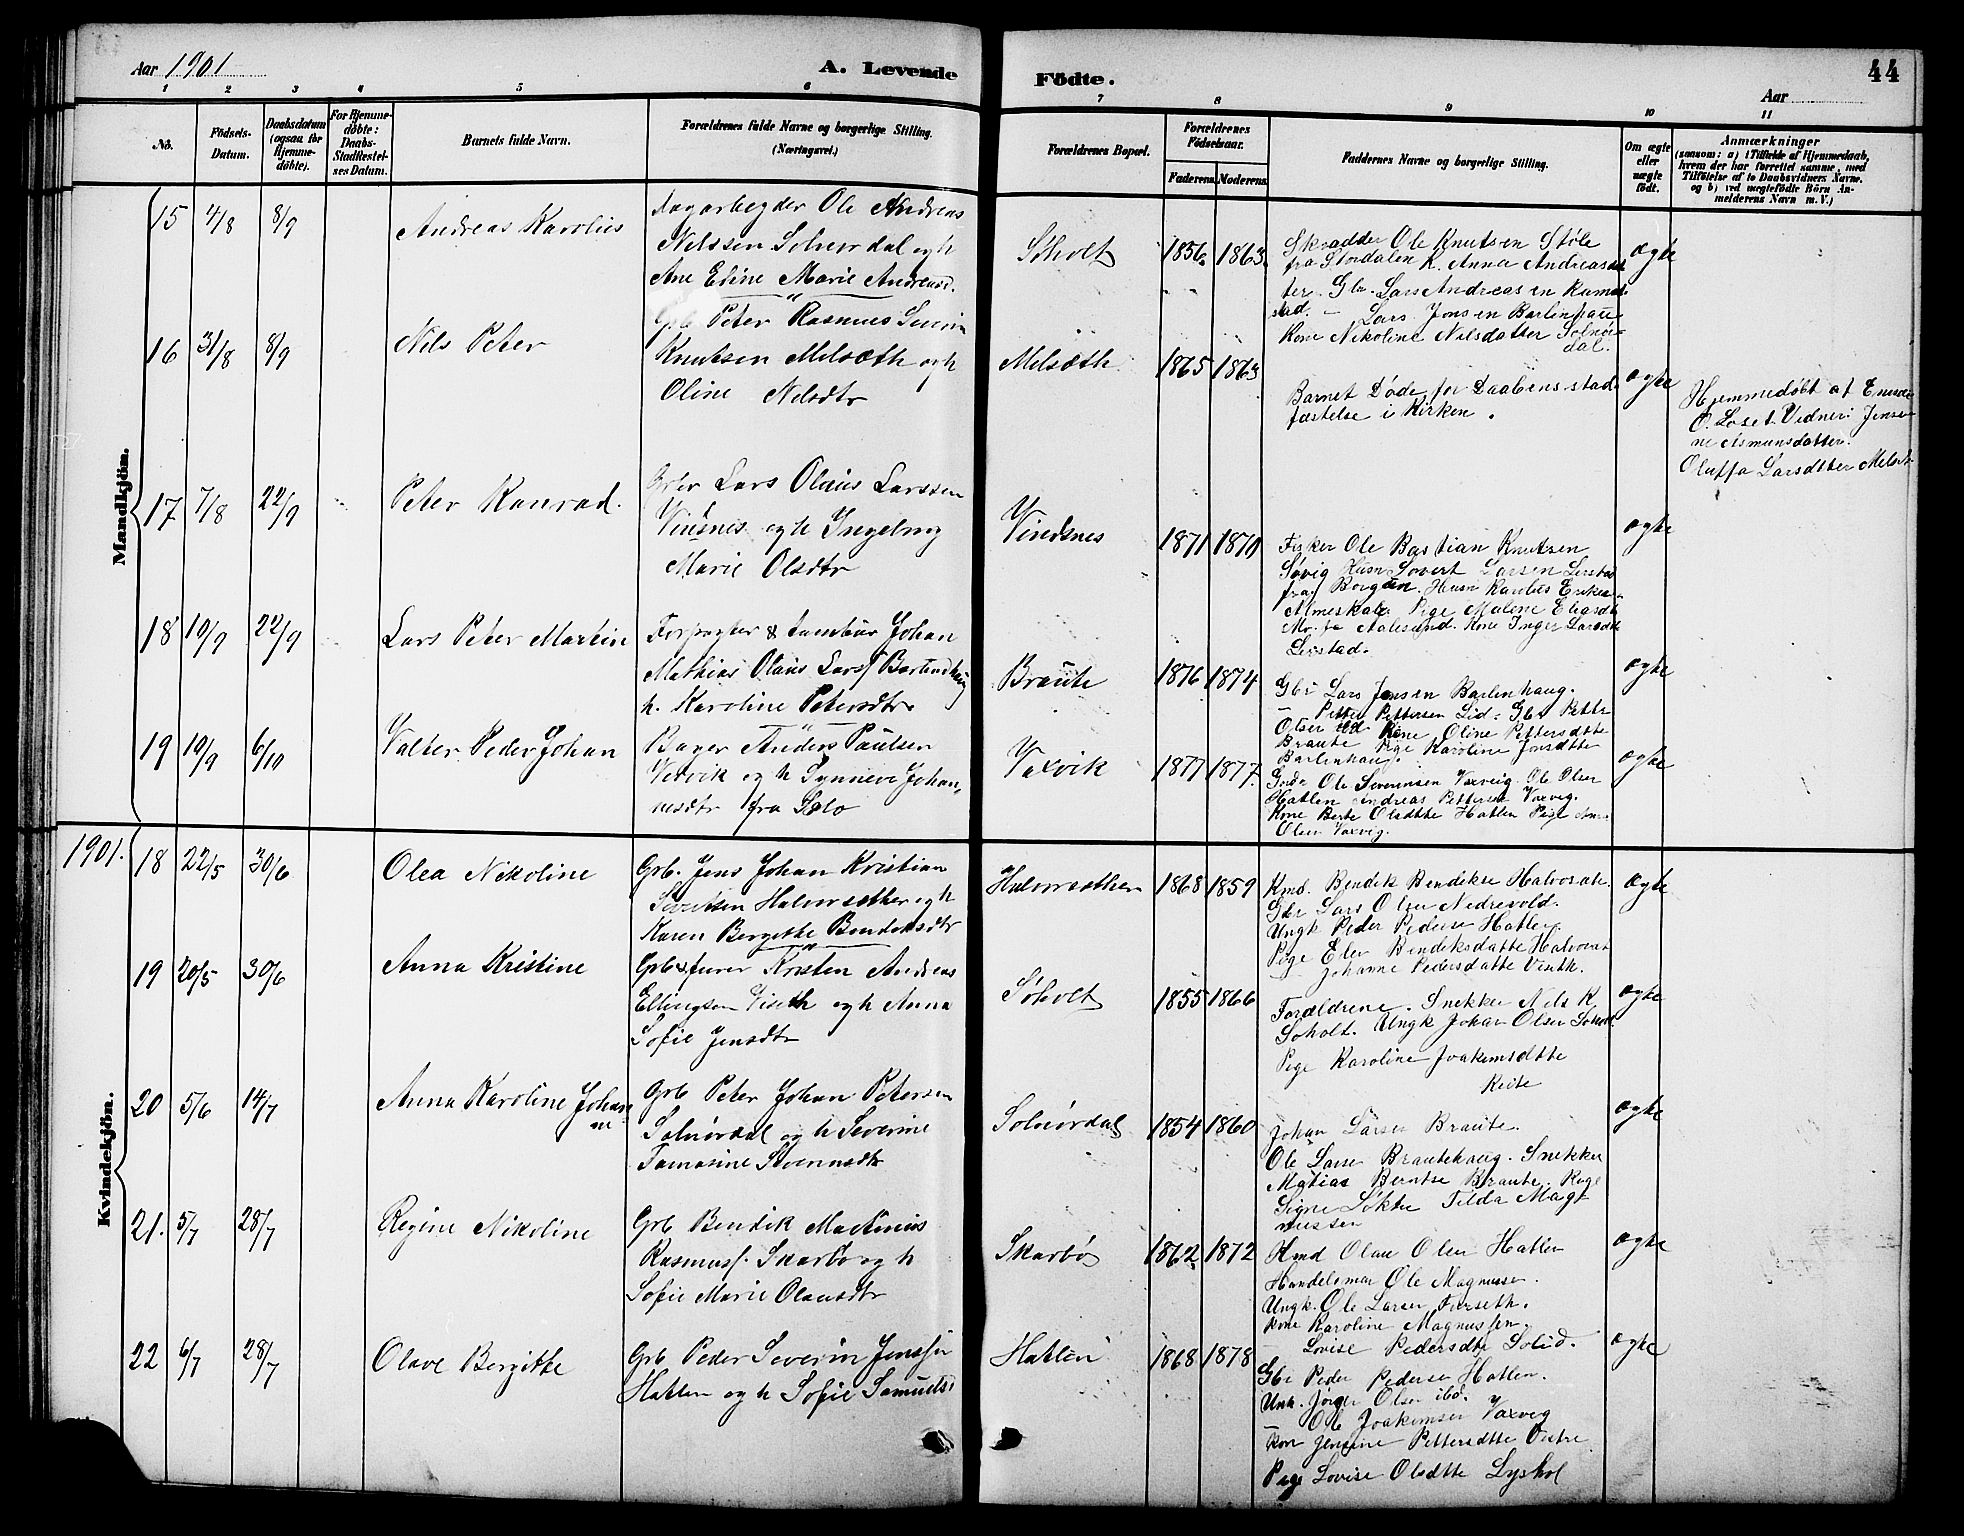 Aar 1901
A. Levende
Födte.
44
Aar
1 2 3 4 5 6 7 8 9 10 11
No.
Födsels-Datum.
Daabsdatum (ogsaa for Hjemmedøbte).
For Hjemmedøbte: Daabs-Stadfæstelses Datum.
Barnets fulde Navn.
Forældrenes fulde Navne og borgerlige Stilling.
(Næringsvei.)
Forældrenes Bopæl.
Forældrenes Födselsaar.
Faderens. Moderens.
Faddernes Navne og borgerlige Stilling.
Om ægte eller uægte født.
Anmærkninger
(saasom: a) i Tilfælde af Hjemmedaab,
hvem der har forrettet samme, med
Tilföielse af to Daabsvidners Navne.
og b) ved uægtefödte Börn An-
melderens Navn m. V.)
Mandkjön.
15 4/8 8/9 Andreas Karolius
Dagarbeyder Ole Andreas
Nilssen Solnørdal og h
Ane Eline Marie Andreasd.
Søholt 1856 1863
Skrædder Ole Knutsen Støle
fra Stordalen K. Anna Andreasdat
ter. Gbr. Lars Andreasen Ramstad
stad. - Lars Jensen Barlinhaug
Kone Nikoline Nilsdatter Solnør
dal.
ægte
16 31/8 8/9 Nils Peter
Grb Peter Rasmus Severin
Knutsen Melsæth og h
Oline Nilsdtr
Melsæth 1865 1863
Barnet Døde før Daabens stad
fæstelse i Kirken.
ægte
Hjemmedøbt af
O. Løset. Vidner: Jensi
ne Asmunsdatter.
Oluffa Larsdtter Melset
17 7/8 22/9 Peter Konrad.
Grbr Lars Olaus Larssen
Vinsnes og h Ingeborg
Marie Olsdtr
Vindsnes 1871 1870
Fisker Ole Bastian Knutsen
Søvig Husm Sivert Larsen Lerstad
fra Borgun. Husm Karolus Eriksen
Almeskala Pige Malene Eliasdt
Mo. fra Aalesund. Kone Inger Larsdt
Lerstad.
ægte
18 10/9 22/9 Lars Peter Martin
Forpagter & tambur Johan
Mathias Olaus Larsf Barlindhaug
h. Karoline Petersdtr
Braute 1876 1874
Gbr Lars Jensen Barlenhaug.
- Petter Pettersen Lid - Gbr Petter
Olsen Lid Kone Oline Pettersdtte
Braute Pige Karoline Jonsdtte
Barlinhaug.
ægte
19 10/9 6/10 Valter Peder Johan
Bager Anders Paulsen
Vexvik og h Synneve Johan,
nesdtr fra Solo
Vaxvik 1877 1877.
Gbr Ole Severinsen Vaxvig. Ole Olsen
Hatlen Andreas Pettersen Vaxvig.
Kone Berte Olsdtte Hatlen Pige Ane
Olsen Vaxvig.
ægte
Kvindekjön.
1901.
18 22/5 30/6 Olea Nikoline
Grb. Jens Johan Kristian
Sivertsen Halvorsether og h
Karen Bergithe Bendiksdtr
Halvorsethern 1868 1859
Kmd. Bendik Bendikse Halvorsæt.
Gbr Lars Olsen Nedrevold.
Ungk Peder Pederse Hatlen.
Pige Elen Bendiksdatte Halvorsæt
- Johanne Pedersdatte Vestk.
ægte
19 20/5 30/6 Anna Kristine
Grb & furer Kristen Andreas
Ellingsen Viseth og h Anna
Sofie Jensdtr
Søholt 1855 1866
Forældrene. Snekker Nils K
Søholt. Ungk Johan Olsen Søholt.
Pige Karoline Joakimsdtte
Reite
ægte
20 5/6 14/7 Anna Karoline Johan
ne
Grb Peter Johan Petersen
Solnørdal og h Severine
Tomasine Severinsdtr
Solnørdal 1854 1860
Johan Larsen Braute.
Ole Larse Brautehaug. Snekker
Matias Berntse Braute. Pige
Signe Løkte Tilda Mag
nussen
ægte
21. 5/7 28/7 Regine Nikoline
Grb Bendik Martinius
Rasmusf. Skarbø og h
Sofie Marie Olausdtr
Skarbø 1862 1872
Kmd Olaus Olsen Hatlen
Handelsman Ole Magnusse.
Ungk. Ole Larsen Furseth.
Kone Karoline Magnussen.
- Lovise Pedersdtr Solnd.
ægte
22 6/7 28/7 Olave Bergitte
Grb Peder Severin Jenssen
Hatlen og h Sofie Samuels
Hatlen 1868 1878
Gbr Peder Pedersen Hatlen.
Unk. Jørgen Olsen ibd.
- Ole Joakimsen Vaxvig
Kone Jensine Pettersdtte Vestre
Pige Lovise Olsdtte Lyshol
ægte